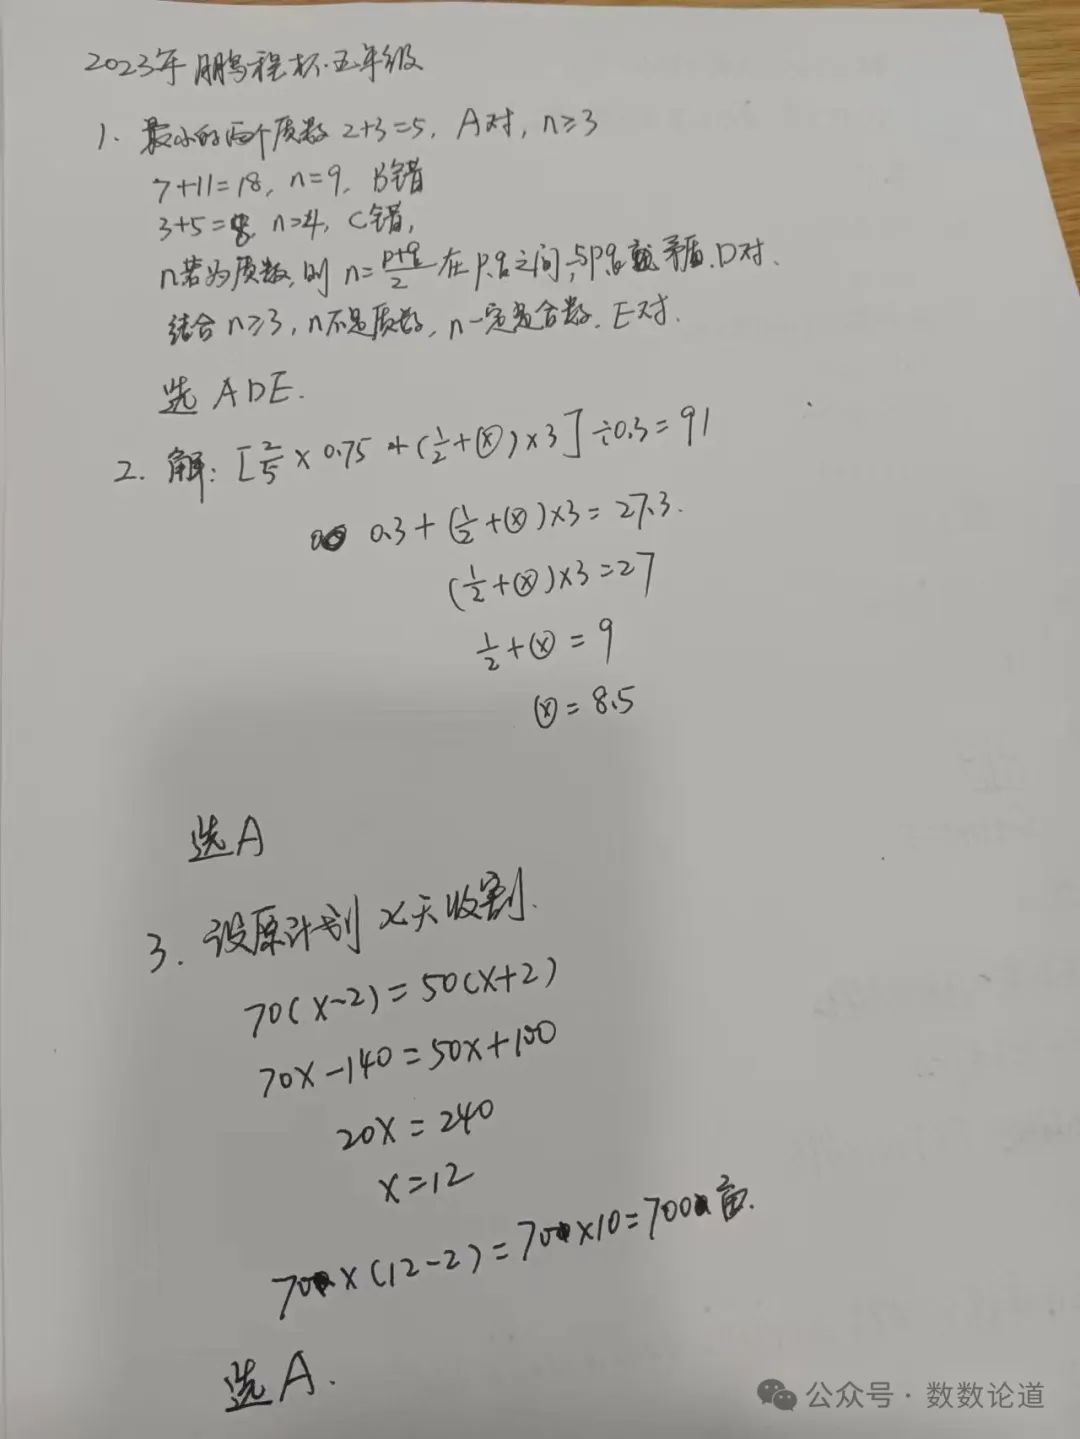 2023年鹏程杯·五年级
1. 最小的两个质数 2+3=5, A对, n≥3
7+11=18, n=9, B错
3+5=8, n=4, C错,
n若为质数,则 n=\frac{p+q}{2} 在p,q之间,与p,q 矛盾.D对.
结合n≥3, n不是质数, n一定是合数. E对.
选 ADE.
2. 解: [\frac{2}{5}×0.75+(\frac{1}{2}+ⓧ)×3]÷0.3=91
0.3+(\frac{1}{2}+ⓧ)×3=27.3.
(\frac{1}{2}+ⓧ)×3=27
\frac{1}{2}+ⓧ=9
ⓧ=8.5
选A
3. 设原计划 x天收割.
70(x-2)=50(x+2)
70x-140=50x+100
20x=240
x=12
70×(12-2)=70×10=700亩.
选A.
公众号·数数论道